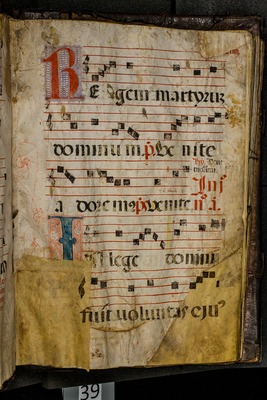 Regem martyrum
dominum. p̄s. Venite
adoremus. p̄s. Venite. n̄. i.
In lege domini
fuit voluntas eju⁹
39